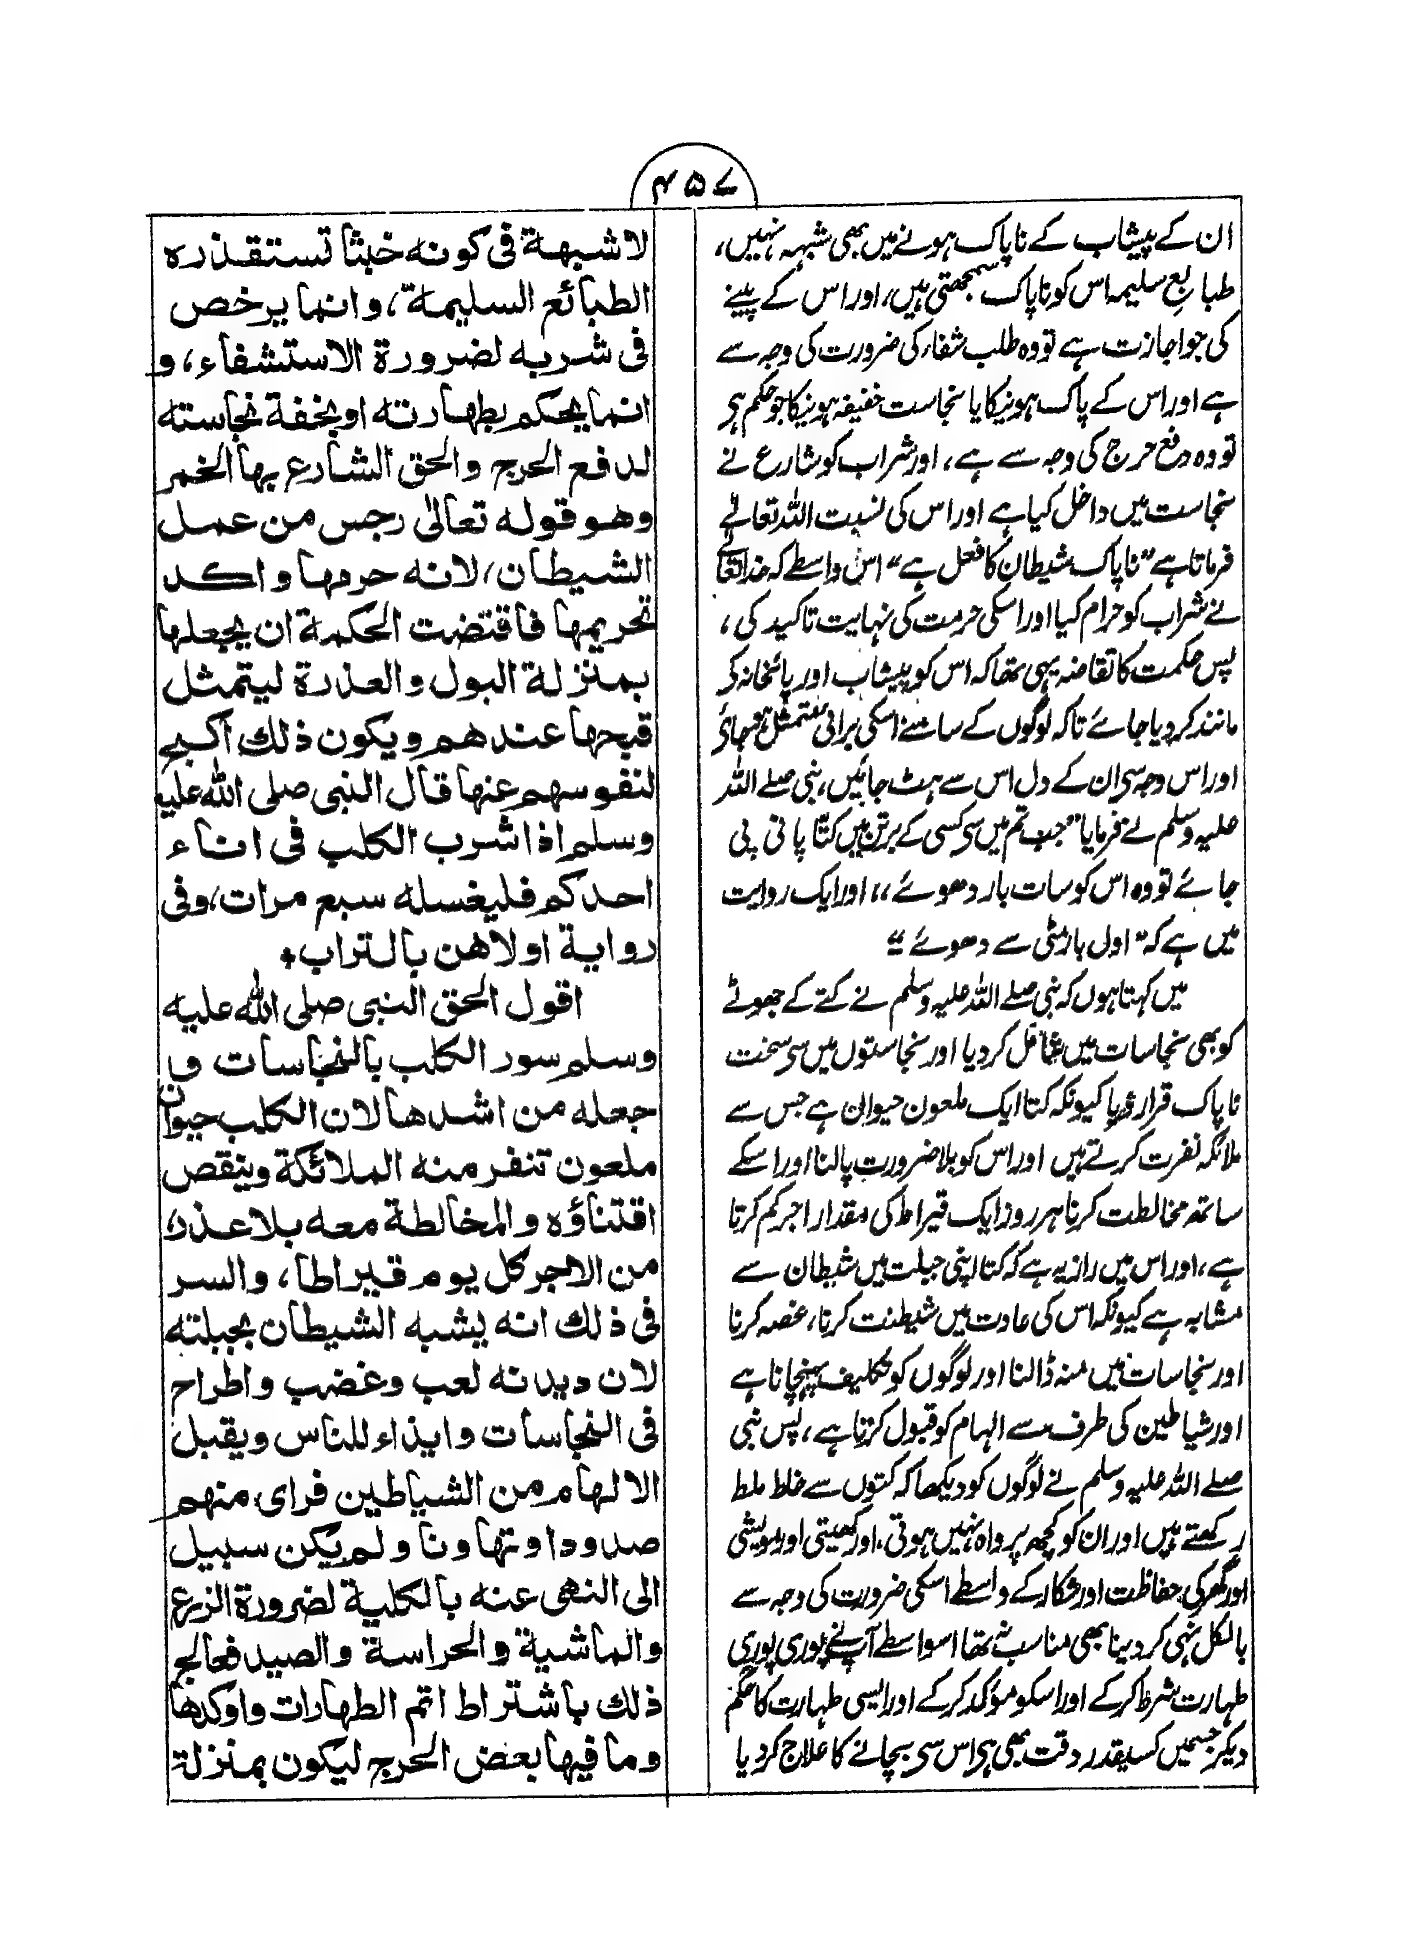 ۴۵۷
ان کے پیشاب کے ناپاک ہونے میں بھی شبہہ نہیں،
طبائع سلیمہ اس کو ناپاک سمجھتی ہیں، اور اس کے پینے
کی جو اجازت ہے تو وہ طلب شفاء کی ضرورت کی وجہ سے
ہے اور اس کے پاک ہونیکا یا نجاست خفیفہ ہونیکا جو حکم ہی
تو وہ دفع حرج کی وجہ سے ہے، اور شراب کو شارع نے
نجاست میں داخل کیا ہے اور اس کی نسبت اللہ تعالےٰ
فرماتا ہے "ناپاک شیطان کا فعل ہے" اس واسطے کہ خدا تعالےٰ
نے شراب کو حرام کیا اور اسکی حرمت کی نہایت تاکید کی،
پس حکمت کا تقاضہ یہی تھا کہ اس کو پیشاب اور پائخانہ کر
مانند کر دیا جائے تاکہ لوگوں کے سامنے اسکی برائی متمثل ہو جائے
اور اس وجہ سی ان کے دل اس سے ہٹ جائیں، نبی صلے اللہ
علیہ وسلم نے فرمایا "جب تم میں سی کسی کے برتن میں کتّا پانی پی
جائے تو وہ اس کو سات بار دھوئے،، اور ایک روایت
میں ہے کہ "اول بار مٹی سے دھوئے"
میں کہتا ہوں کہ نبی صلے اللہ علیہ وسلم نے کتے کے جھوٹے
کو بھی نجاسات میں شامل کر دیا اور نجاستوں میں سی سخت
ناپاک قرار دیا کیونکہ کتا ایک ملعون حیوان ہے جس سے
ملائکہ نفرت کرتے ہیں اور اس کو بلا ضرورت پالنا اور اسکے
ساتھ مخالطت کرنا ہر روز ایک قیراط کی مقدار اجر کم کرتا
ہے، اور اس میں راز یہ ہے کہ کتا اپنی جبلت میں شیطان سے
مشابہ ہے کیونکہ اس کی عادت میں شیطنت کرنا، غصہ کرنا
اور نجاسات میں منہ ڈالنا اور لوگوں کو تکلیف پہنچانا ہے
اور شیاطین کی طرف سے الہام کو قبول کرتا ہے، پس نبی
صلے اللہ علیہ وسلم نے لوگوں کو دیکھا کہ کتوں سے خلط ملط
رکھتے ہیں اور ان کو کچھ پرواہ نہیں ہوتی، اور کھیتی اور مویشی
اور گھر کی حفاظت اور شکار کے واسطے اسکی ضرورت کی وجہ سے
بالکل نہی کر دینا بھی مناسب نہ تھا اسواسطے آپ نے پوری پوری
طہارت شرط کر کے اور اسکو مؤکد کر کے اور ایسی طہارت کا حکم
دیکر جسمیں کسیقدر دقت بھی ہی اس سی بچانے کا علاج کر دیا
لاشبهة فى كونه خبثا تستقذره
الطبائع السليمة، وانما يرخص
فى شربه لضرورة الاستشفاء، و
انما يحكم بطهارته اوبخفة نجاسته
لدفع الحرج والحق الشارع بها الخمر
وهو قوله تعالىٰ رجس من عمل
الشيطان، لانه حرمها واكد
تحريمها فاقتضت الحكمة ان يجعلها
بمنزلة البول والعذرة ليتمثل
قبحها عندهم ويكون ذلك اكبح
لنفوسهم عنها قال النبى صلى الله عليه
وسلم اذا شرب الكلب فى اناء
احدكم فليغسله سبع مرات، وفى
رواية اولاهن بالتراب٭
اقول الحق النبى صلى الله عليه
وسلم سور الكلب بالنجاسات و
جعله من اشدها لان الكلب حيوان
ملعون تنفر منه الملائكة وينقص
اقتناؤه والمخالطة معه بلا عذر،
من الاجر كل يوم قيراطا، والسر
فى ذلك انه يشبه الشيطان بجبلته
لان ديدنه لعب وغضب واطراح
فى النجاسات وايذاء للناس ويقبل
الالهام من الشياطين فراى منهم
صدودا وتهاونا ولم يكن سبيل
الى النهى عنه بالكلية لضرورة الزرع
والماشية والحراسة والصيد فعالج
ذلك باشتراط اتم الطهارات واوكدها
وما فيها بعض الحرج ليكون بمنزلة